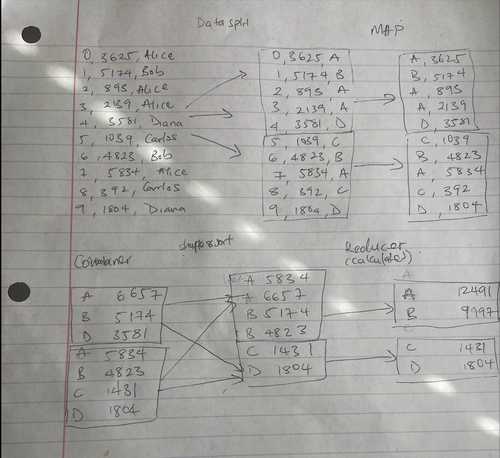 Data split
MAP
0, 3625, Alice
1, 5174, Bob
2, 895, Alice
3, 2139, Alice
4, 3581, Diana
5, 1039, Carlos
6, 4823, Bob
7, 5834, Alice
8, 392, Carlos
9, 1804, Diana
0, 3625, A
1, 5174, B
2, 895, A
3, 2139, A
4, 3581, D
5, 1039, C
6, 4823, B
7, 5834, A
8, 392, C
9, 1804, D
A, 3625
B, 5174
A, 895
A, 2139
D, 3581
C, 1039
B, 4823
A, 5834
C, 392
D, 1804
Combiner
A 6657
B 5174
D 3581
A 5834
B 4823
C 1431
D 1804
shuffle & sort
A 5834
A 6657
B 5174
B 4823
C 1431
D 1804
Reducer
(calculates)
A
A 12491
B 9997
C
C 1431
D 1804